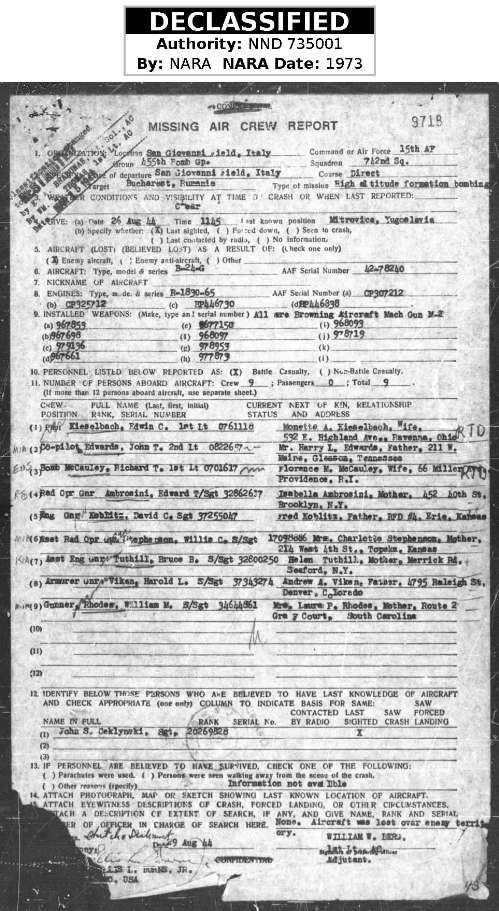 DECLASSIFIED
Authority: NND 735001
By: NARA NARA Date: 1973
MISSING AIR CREW REPORT
9718
1. ORGANIZATION: Location San Giovanni Field, Italy Command or Air Force 15th AF
Group 455th Bomb Gp. Squadron 742nd Sq.
of departure San Giovanni Field, Italy Course Direct
Target Bucharest, Rumania Type of mission High altitude formation bombing
WEATHER CONDITIONS AND VISIBILITY AT TIME OF CRASH OR WHEN LAST REPORTED:
Clear
GIVE: (a) Date 26 Aug 44 Time 1145 Last known position Mitrovica, Yugoslavia
(b) Specify whether: (X) Last sighted, ( ) Forced down, ( ) Seen to crash,
( ) Last contacted by radio, ( ) No information.
5. AIRCRAFT (LOST) (BELIEVED LOST) AS A RESULT OF: (Check one only)
(X) Enemy aircraft, ( ) Enemy anti-aircraft, ( ) Other
6. AIRCRAFT: Type, model & series B-24-G AAF Serial Number 42-78240
7. NICKNAME OF AIRCRAFT
8. ENGINES: Type, mode & series R-1830-65 AAF Serial Number (a) CP307212
(b) CP325712 (c) BP446730 (d) BP446838
9. INSTALLED WEAPONS: (Make, type and serial number) All are Browning Aircraft Mach Gun M-2
(a) 967859 (e) 8677150 (i) 968099
(b) 967698 (f) 968097 (j) 978719
(c) 979196 (g) 978953 (k)
(d) 967661 (h) 977879 (l)
10. PERSONNEL LISTED BELOW REPORTED AS: (X) Battle Casualty. ( ) Non-Battle Casualty.
11. NUMBER OF PERSONS ABOARD AIRCRAFT: Crew 9 ; Passengers 0 ; Total 9
(If more than 12 persons aboard aircraft, use separate sheet.)
CREW FULL NAME (Last, first, initial) CURRENT NEXT OF KIN, RELATIONSHIP
POSITION RANK, SERIAL NUMBER STATUS AND ADDRESS
(1) Pilot Kieselbach, Edwin C. 1st Lt 0761118 Monetta A. Kieselbach, Wife,
592 E. Highland Ave., Ravenna, Ohio RTD
(2) Co-pilot Edwards, John T. 2nd Lt Mr. Harry L. Edwards, Father, 211 W.
Maine, Gleason, Tennessee
(3) Bomb McCauley, Richard T. 1st Lt 0701617 Florence M. McCauley, Wife, 66 Miller RTD
Providence, R.I.
(4) Rad Opr Gnr Ambrosini, Edward T/Sgt 32862637 Isabella Ambrosini, Mother, 452 40th St.
Brooklyn, N.Y.
(5) Eng Gnr Koblitz, David C. Sgt 37255047 Fred Koblitz, Father, RFD #4, Erie, Kansas
(6) Asst Rad Opr Gnr Stephenson, Willis C. S/Sgt 17098886 Mrs. Charlotte Stephenson, Mother,
214 West 4th St., Topeka, Kansas
(7) Asst Eng Gnr Tuthill, Bruce B. S/Sgt 32800250 Helen Tuthill, Mother, Merrick Rd.,
Seaford, N.Y.
(8) Armurer Gnr Viken, Harold L. S/Sgt 37343274 Andrew A. Viken, Father, 4795 Raleigh St,
Denver, Coloredo
(9) Gunner, Rhodes, William M. S/Sgt 34644861 Mrs. Laura P. Rhodes, Mother, Route 2
Gray Court, South Carolina
(10)
(11)
(12)
12. IDENTIFY BELOW THOSE PERSONS WHO ARE BELIEVED TO HAVE LAST KNOWLEDGE OF AIRCRAFT
AND CHECK APPROPRIATE (one only) COLUMN TO INDICATE BASIS FOR SAME: SAW
CONTACTED LAST SAW FORCED
NAME IN FULL RANK SERIAL No. BY RADIO SIGHTED CRASH LANDING
(1) John S. Ceklynski, Sgt, 20269828 X
(2)
(3)
13. IF PERSONNEL ARE BELIEVED TO HAVE SURVIVED, CHECK ONE OF THE FOLLOWING:
( ) Parachutes were used. ( ) Persons were seen walking away from the scene of the crash.
( ) Other reasons (specify) Information not available
14. ATTACH PHOTOGRAPH, MAP OR SKETCH SHOWING LAST KNOWN LOCATION OF AIRCRAFT.
ATTACH EYEWITNESS DESCRIPTIONS OF CRASH, FORCED LANDING, OR OTHER CIRCUMSTANCES.
ATTACH A DESCRIPTION OF EXTENT OF SEARCH, IF ANY, AND GIVE NAME, RANK AND SERIAL
OF OFFICER IN CHARGE OF SEARCH HERE. None. Aircraft was lost over enemy territ
ory.
29 Aug 44 WILLIAM W. BERG,
1st Lt., AC,
CONFIDENTIAL Adjutant.
JR.
USA